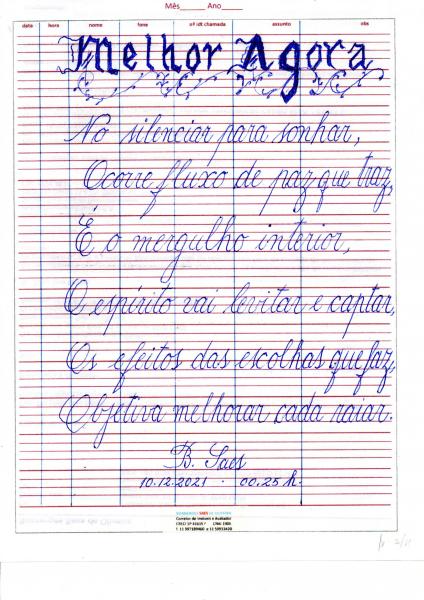 Mês_____ Ano____
data hora nome fone nº idt chamada assunto obs
Melhor Agora
No silenciar para sonhar,
Ocorre fluxo de paz que traz,
É o mergulho interior,
O espírito vai levitar e captar,
Os efeitos das escolhas que faz,
Objetiva melhorar cada raiar.
B. Saes
10.12.2021 . 00.25 h.
SAES DE OLIVEIRA
Corretor de Imóveis e Avaliador